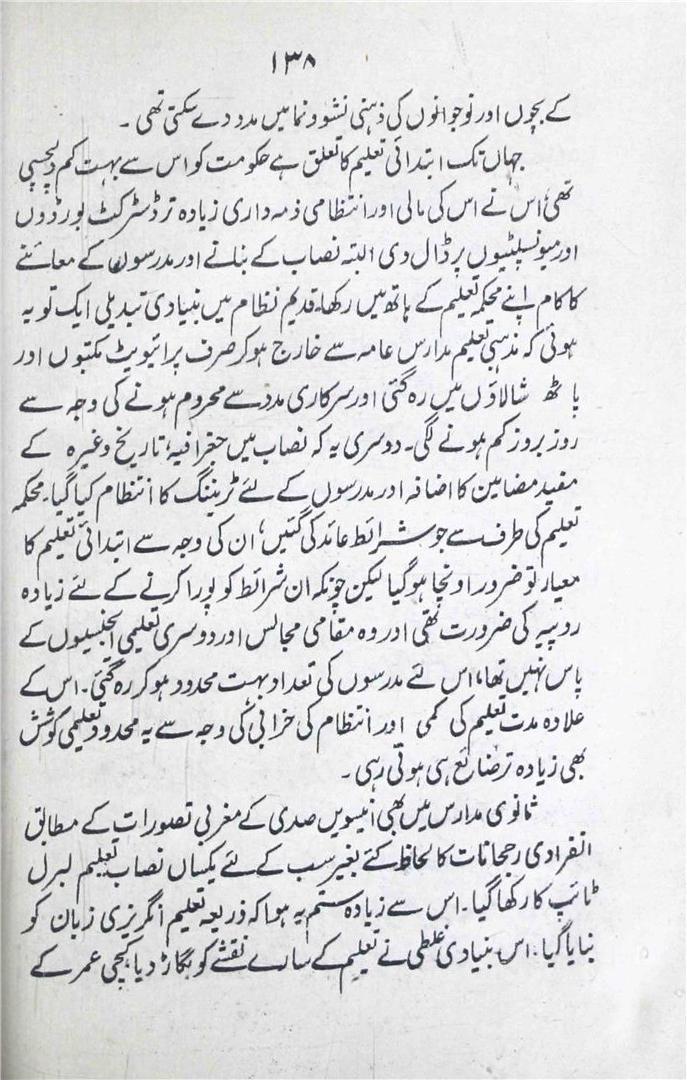 ۱۳۸
کے بچوں اور نوجوانوں کی ذہنی نشوونما میں مدد دے سکتی تھی ۔
جہاں تک ابتدائی تعلیم کا تعلق ہے حکومت کو اس سے بہت کم دلچسپی
تھی، اس نے اس کی مالی اور انتظامی ذمہ داری زیادہ تر ڈسٹرکٹ بورڈوں
اور میونسپلٹیوں پر ڈال دی البتہ نصاب کے بنانے اور مدرسوں کے معائنے
کا کام اپنے محکمہ تعلیم کے ہاتھ میں رکھا، قدیم نظام میں بنیادی تبدیلی ایک تو یہ
ہوئی کہ مذہبی تعلیم مدارس عامہ سے خارج ہو کر صرف پرائیویٹ مکتبوں اور
پاٹھ شالاؤں میں رہ گئی اور سرکاری مدد سے محروم ہونے کی وجہ سے
روز بروز کم ہونے لگی۔ دوسری یہ کہ نصاب میں جغرافیہ، تاریخ وغیرہ کے
مفید مضامین کا اضافہ اور مدرسوں کے لئے ٹریننگ کا انتظام کیا گیا۔ محکمہ
تعلیم کی طرف سے جو شرائط عائد کی گئیں، ان کی وجہ سے ابتدائی تعلیم کا
معیار تو ضرور اونچا ہو گیا لیکن چونکہ ان شرائط کو پورا کرنے کے لئے زیادہ
روپیہ کی ضرورت تھی اور وہ مقامی مجالس اور دوسری تعلیمی ایجنسیوں کے
پاس نہیں تھا، اس لئے مدرسوں کی تعداد بہت محدود ہو کر رہ گئی۔ اس کے
علاوہ مدت تعلیم کی کمی اور انتظام کی خرابی کی وجہ سے یہ محدود تعلیمی کوشش
بھی زیادہ تر ضائع ہی ہوتی رہی ۔
ثانوی مدارس میں بھی انیسویں صدی کے مغربی تصورات کے مطابق
انفرادی رجحانات کا لحاظ کئے بغیر سب کے لئے یکساں نصاب تعلیم لبرل
ٹائپ کا رکھا گیا۔ اس سے زیادہ ستم یہ ہوا کہ ذریعہ تعلیم انگریزی زبان کو
بنایا گیا۔ اس بنیادی غلطی نے تعلیم کے سارے نقشے کو بگاڑ دیا، کچی عمر کے